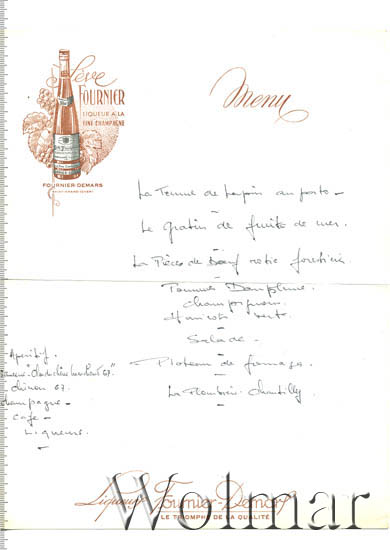 Sève
FOURNIER
LIQUEUR A LA
FINE CHAMPAGNE
FOURNIER-DEMARS
Menu
La Terrine de lapin au porto -
Le gratin de fruits de mer.
La Pièce de boeuf rotie forestière
Pommes Dauphine.
champignons
Haricots verts.
Salade.
Plateau de fromage.
La Plombière Chantilly
Apéritif.
chinon 67.
champagne -
café -
Liqueurs.
Liqueurs Fournier-Demars
LE TRIOMPHE DE LA QUALITÉ
Wolmar